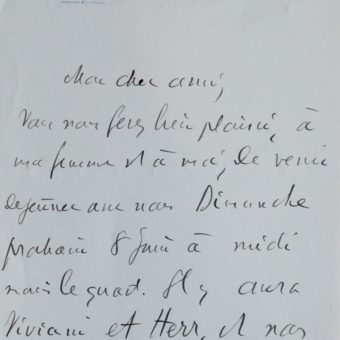 Mon cher ami,
Vous nous ferez bien plaisir, à
ma femme et à moi, de venir
déjeuner avec nous Dimanche
prochain 8 Juin à midi
moins le quart. Il y aura
Viviani et Herr, et nos